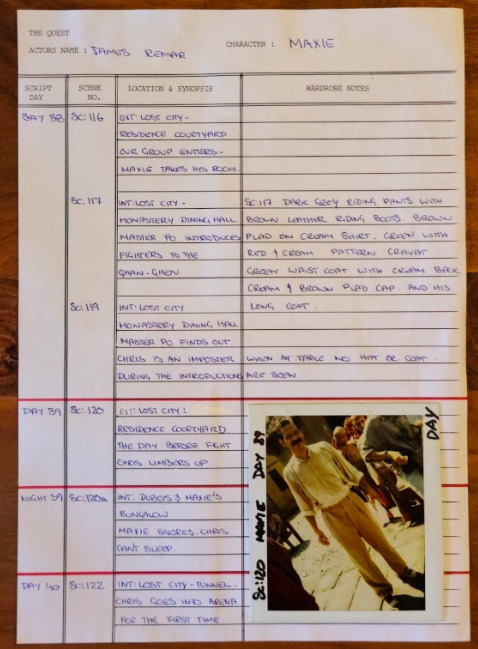 THE QUEST
ACTORS NAME : JAMES REMAR
CHARACTER : MAXIE
SCRIPT DAY
SCENE NO.
LOCATION & SYNOPSIS
WARDROBE NOTES
DAY 38 SC:116 EXT: LOST CITY -
RESIDENCE COURTYARD.
OUR GROUP ENTERS -
MAXIE TAKES HIS ROOM.
SC:117 INT: LOST CITY - SC:117 DARK GREY RIDING PANTS WITH
MONASTERY DINING HALL BROWN LEATHER RIDING BOOTS. BROWN
MASTER PO INTRODUCES PLAD ON CREAM SHIRT. GREEN WITH
FIGHTERS TO THE RED & CREAM PATTERN CRAVAT
GHAN-GHEN. GREEN WAIST COAT WITH CREAM BACK
CREAM & BROWN PLAD CAP. AND HIS
SC:119 INT: LOST CITY LONG COAT.
MONASTERY DINING HALL
MASTER PO FINDS OUT
CHRIS IS AN IMPOSTER WHEN AT TABLE NO HAT OR COAT
DURING THE INTRODUCTIONS ARE SEEN.
DAY 39 SC:120 EXT: LOST CITY:
RESIDENCE COURTYARD
THE DAY BEFORE FIGHT
CHRIS LIMBERS UP
NIGHT 39 SC:120A INT: DUBOIS & MAXIE'S
BUNGALOW
MAXIE SNORES. CHRIS
CAN'T SLEEP.
DAY 40 SC:122 INT: LOST CITY - TUNNEL.
CHRIS GOES INTO ARENA
FOR THE FIRST TIME.
SC:120 MAXIE DAY 39
DAY